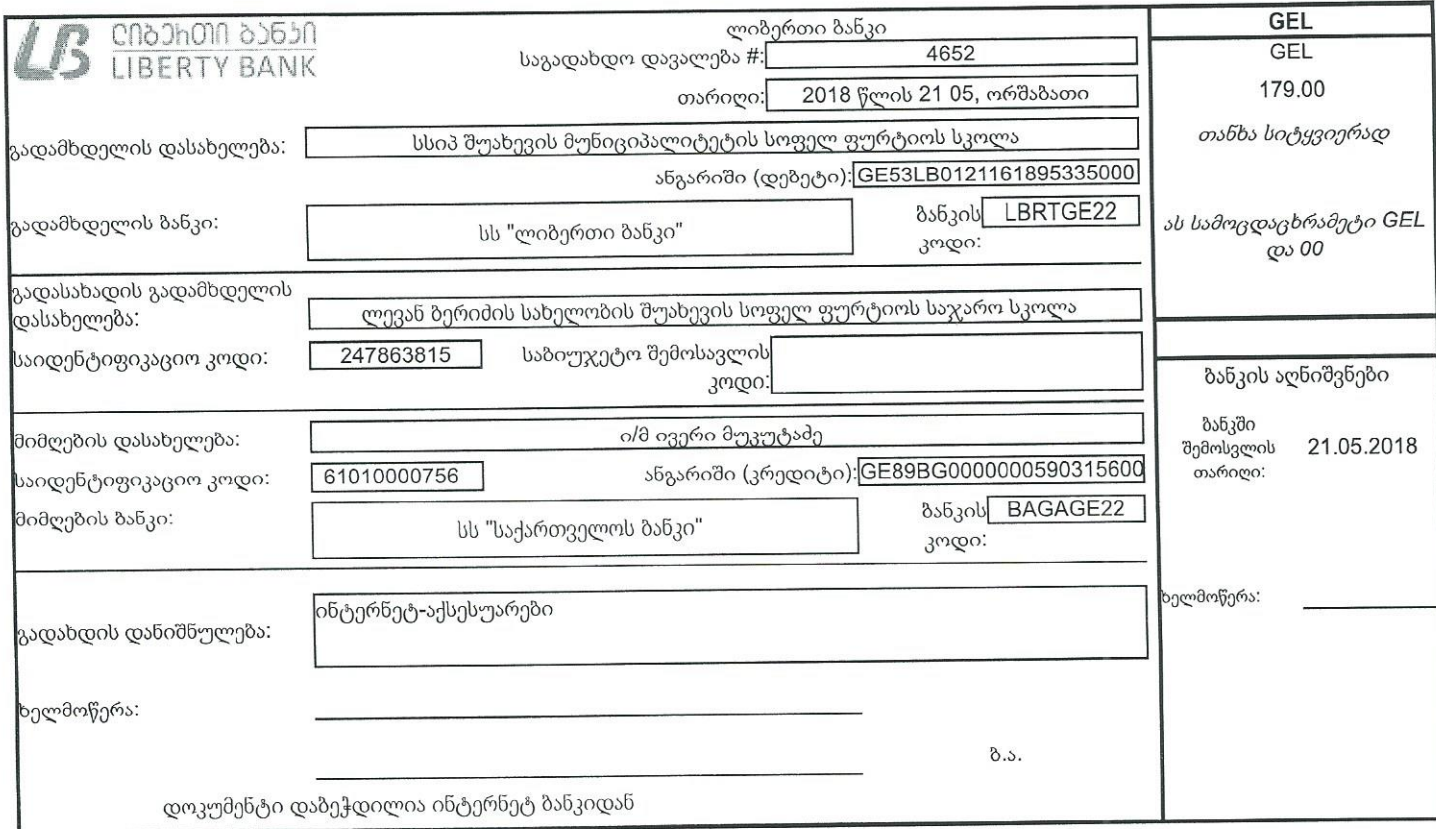 ლიბერთი ბანკი
LIBERTY BANK
ლიბერთი ბანკი
საგადახდო დავალება #: 4652
თარიღი: 2018 წლის 21 05, ორშაბათი
გადამხდელის დასახელება: სსიპ შუახევის მუნიციპალიტეტის სოფელ ფურტიოს სკოლა
ანგარიში (დებეტი): GE53LB0121161895335000
გადამხდელის ბანკი: სს "ლიბერთი ბანკი"
ბანკის კოდი: LBRTGE22
გადასახადის გადამხდელის
დასახელება: ლევან ბერიძის სახელობის შუახევის სოფელ ფურტიოს საჯარო სკოლა
საიდენტიფიკაციო კოდი: 247863815
საბიუჯეტო შემოსავლის
კოდი:
მიმღების დასახელება: ი/მ ივერი მუკუტაძე
საიდენტიფიკაციო კოდი: 61010000756
ანგარიში (კრედიტი): GE89BG0000000590315600
მიმღების ბანკი: სს "საქართველოს ბანკი"
ბანკის კოდი: BAGAGE22
გადახდის დანიშნულება: ინტერნეტ-აქსესუარები
ხელმოწერა:
ბ.ა.
დოკუმენტი დაბეჭდილია ინტერნეტ ბანკიდან
GEL
GEL
179.00
თანხა სიტყვიერად
ას სამოცდაცხრამეტი GEL
და 00
ბანკის აღნიშვნები
ბანკში
შემოსვლის 21.05.2018
თარიღი:
ხელმოწერა: